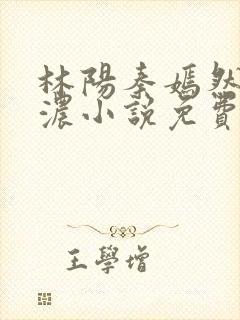 林陽秦嫣然
濃小說免費
王學增